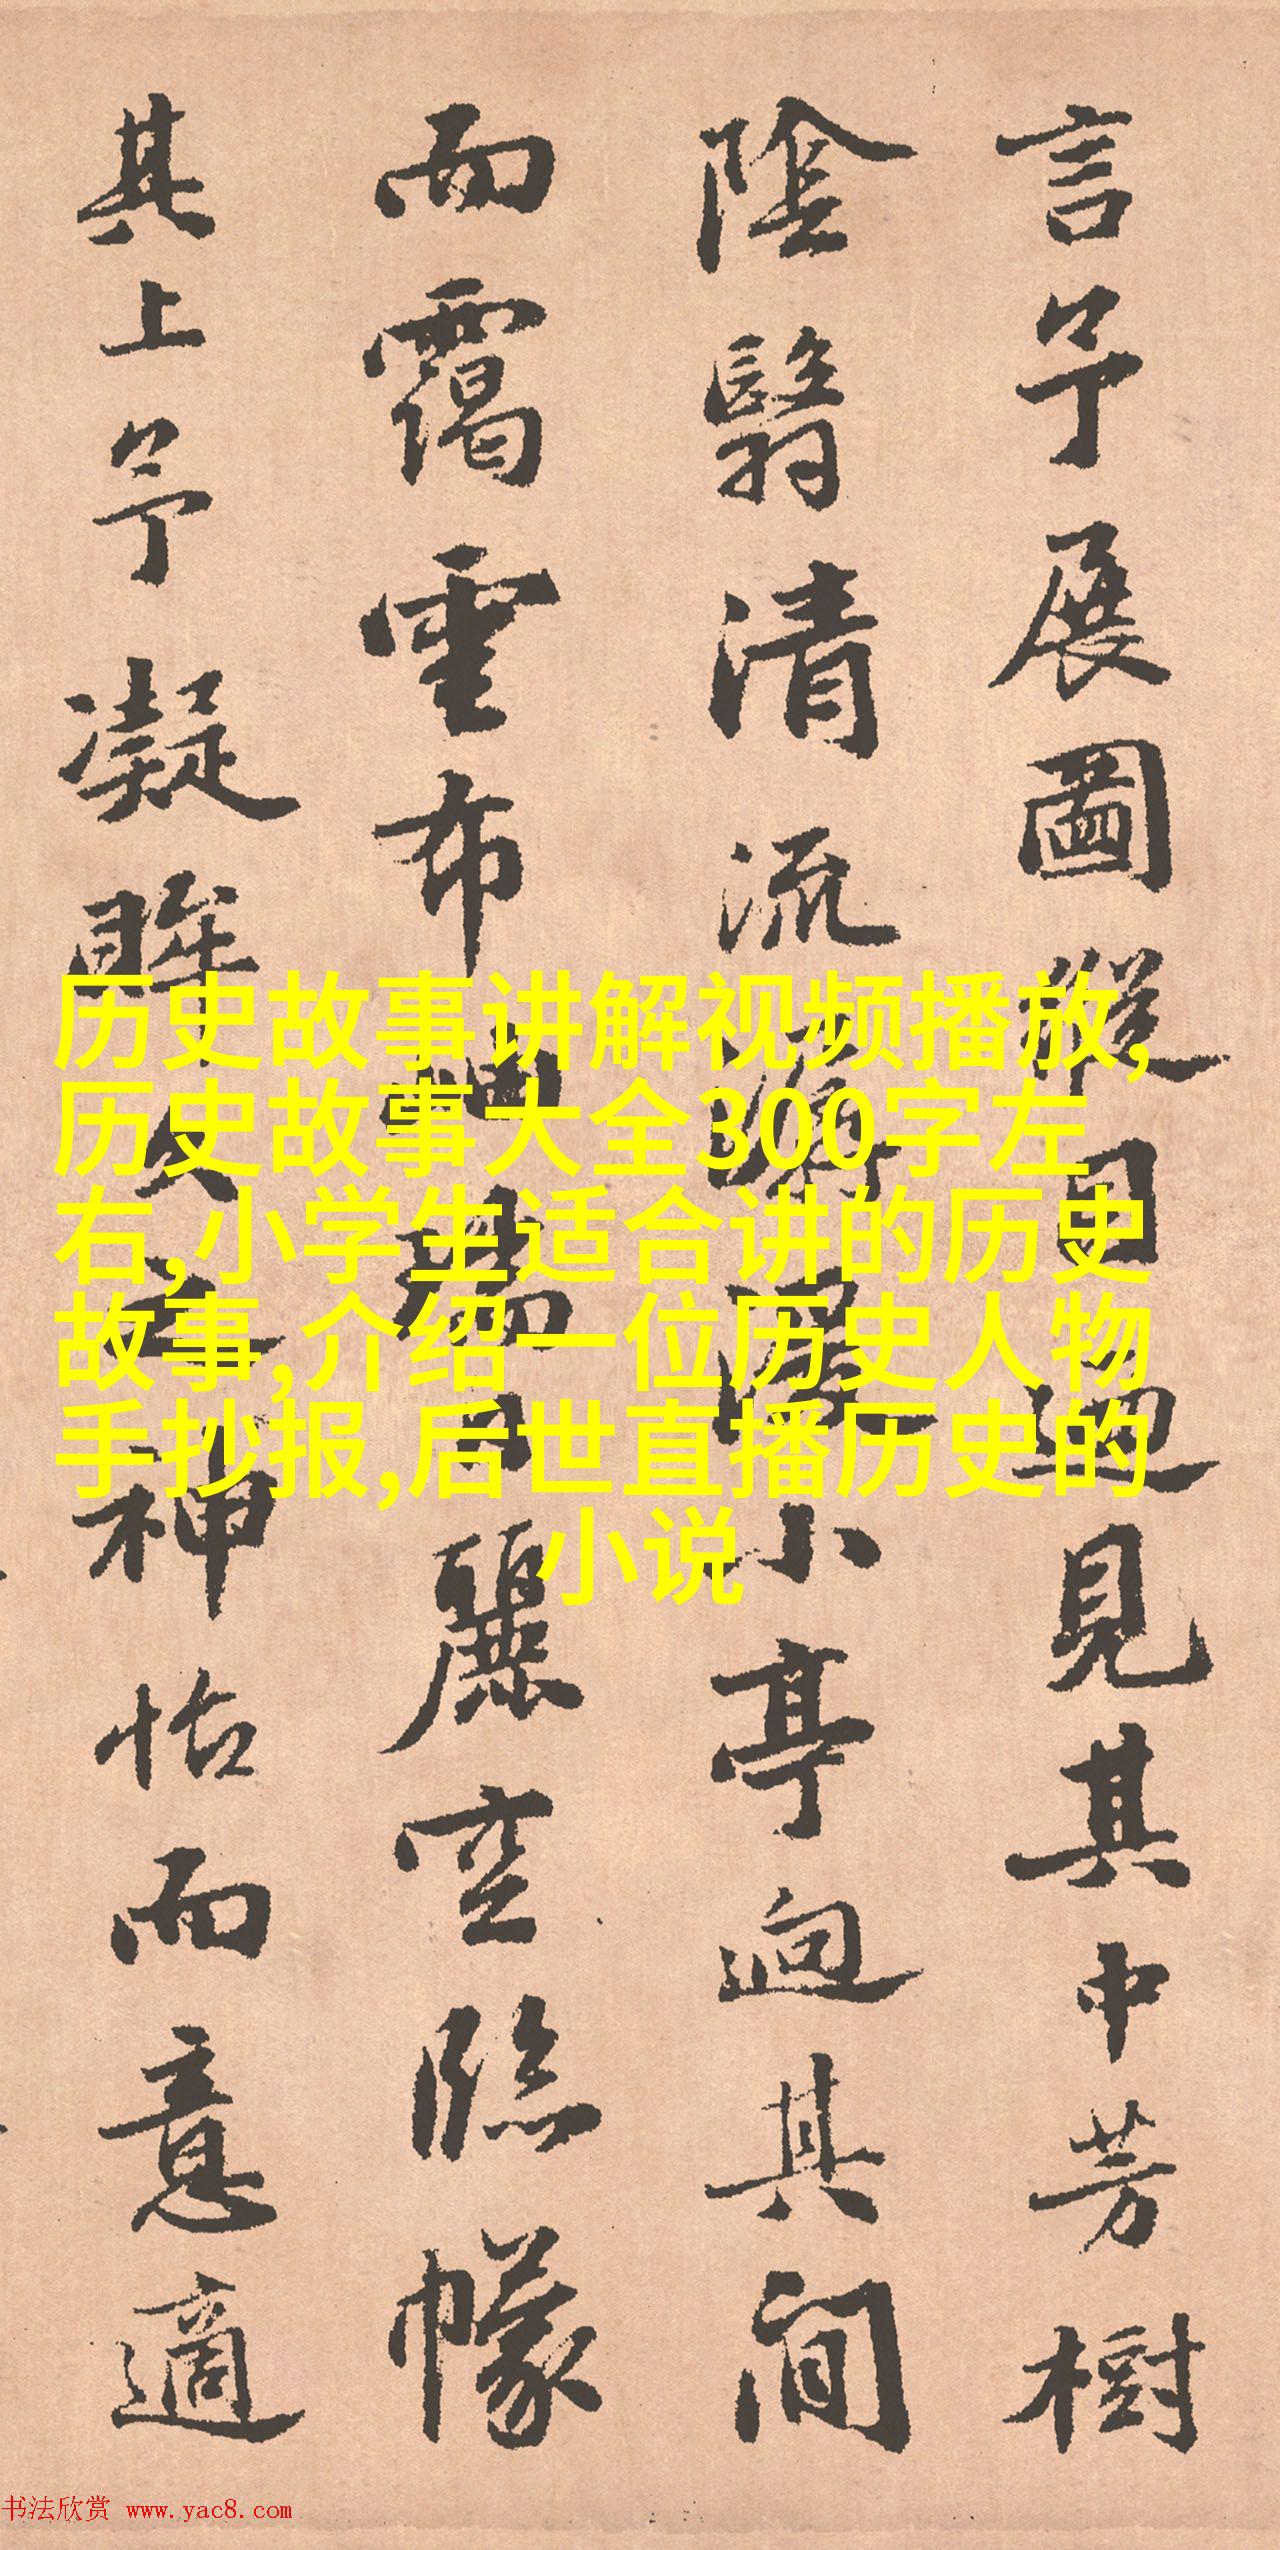 言予展圖縱目見其中芳樹
陰翳清流小亭逈其間
而靄雲布日麗空臨幪
其上予凝眸久之神怡而意適
历史故事讲解视频播放,
历史故事大全300字左
右,小学生适合讲的历史
故事,介绍一位历史人物
手抄报,后世直播历史的
小说
书法欣赏 www.yac8.com